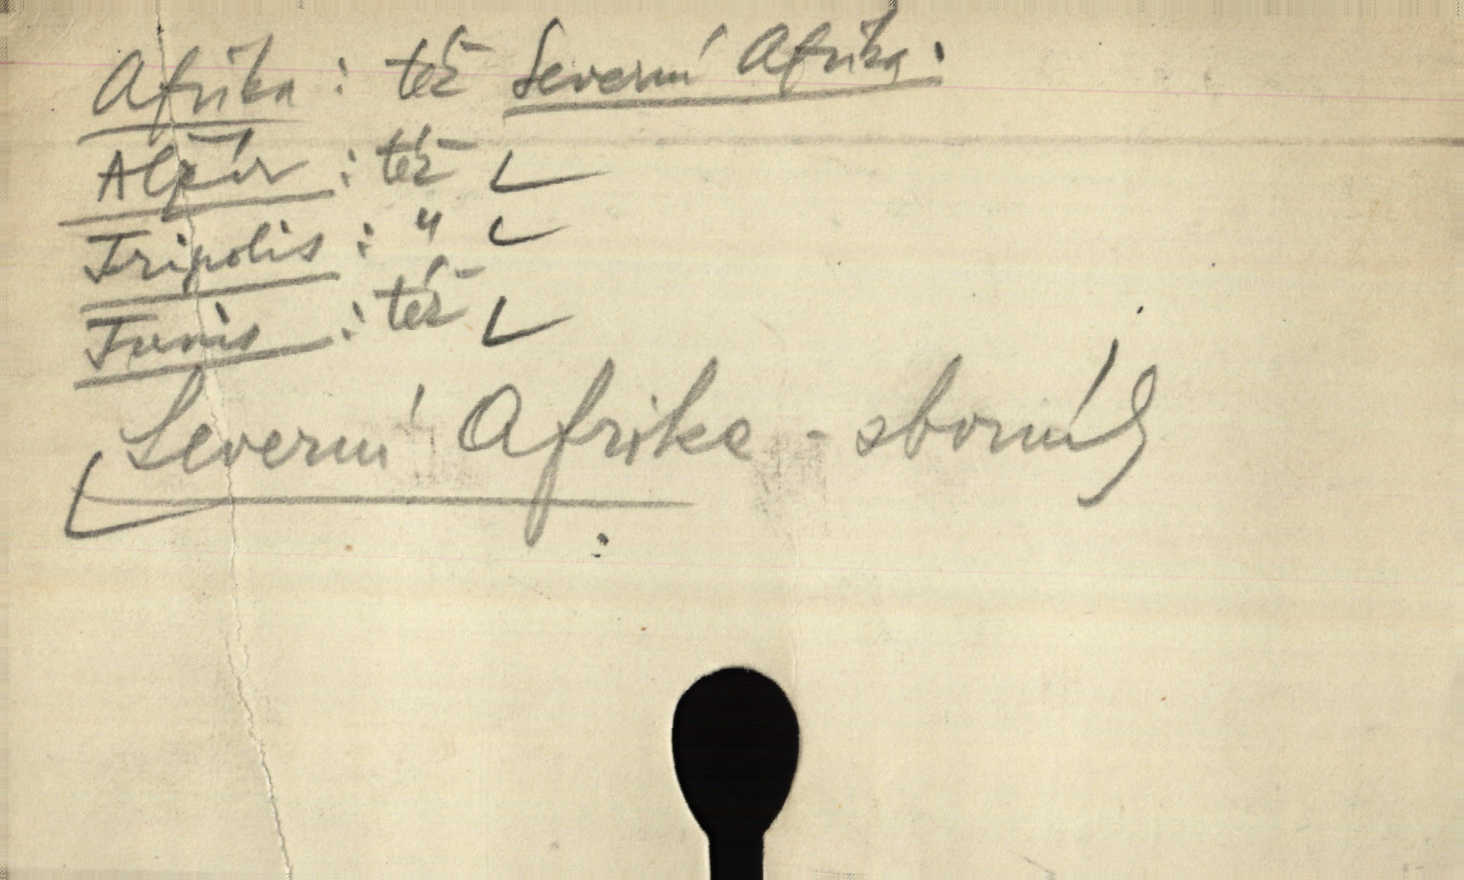 Afrika : též Severní Afrika.
Alžír : též
Tripolis : "
Tunis : též
Severní Afrika - sborník